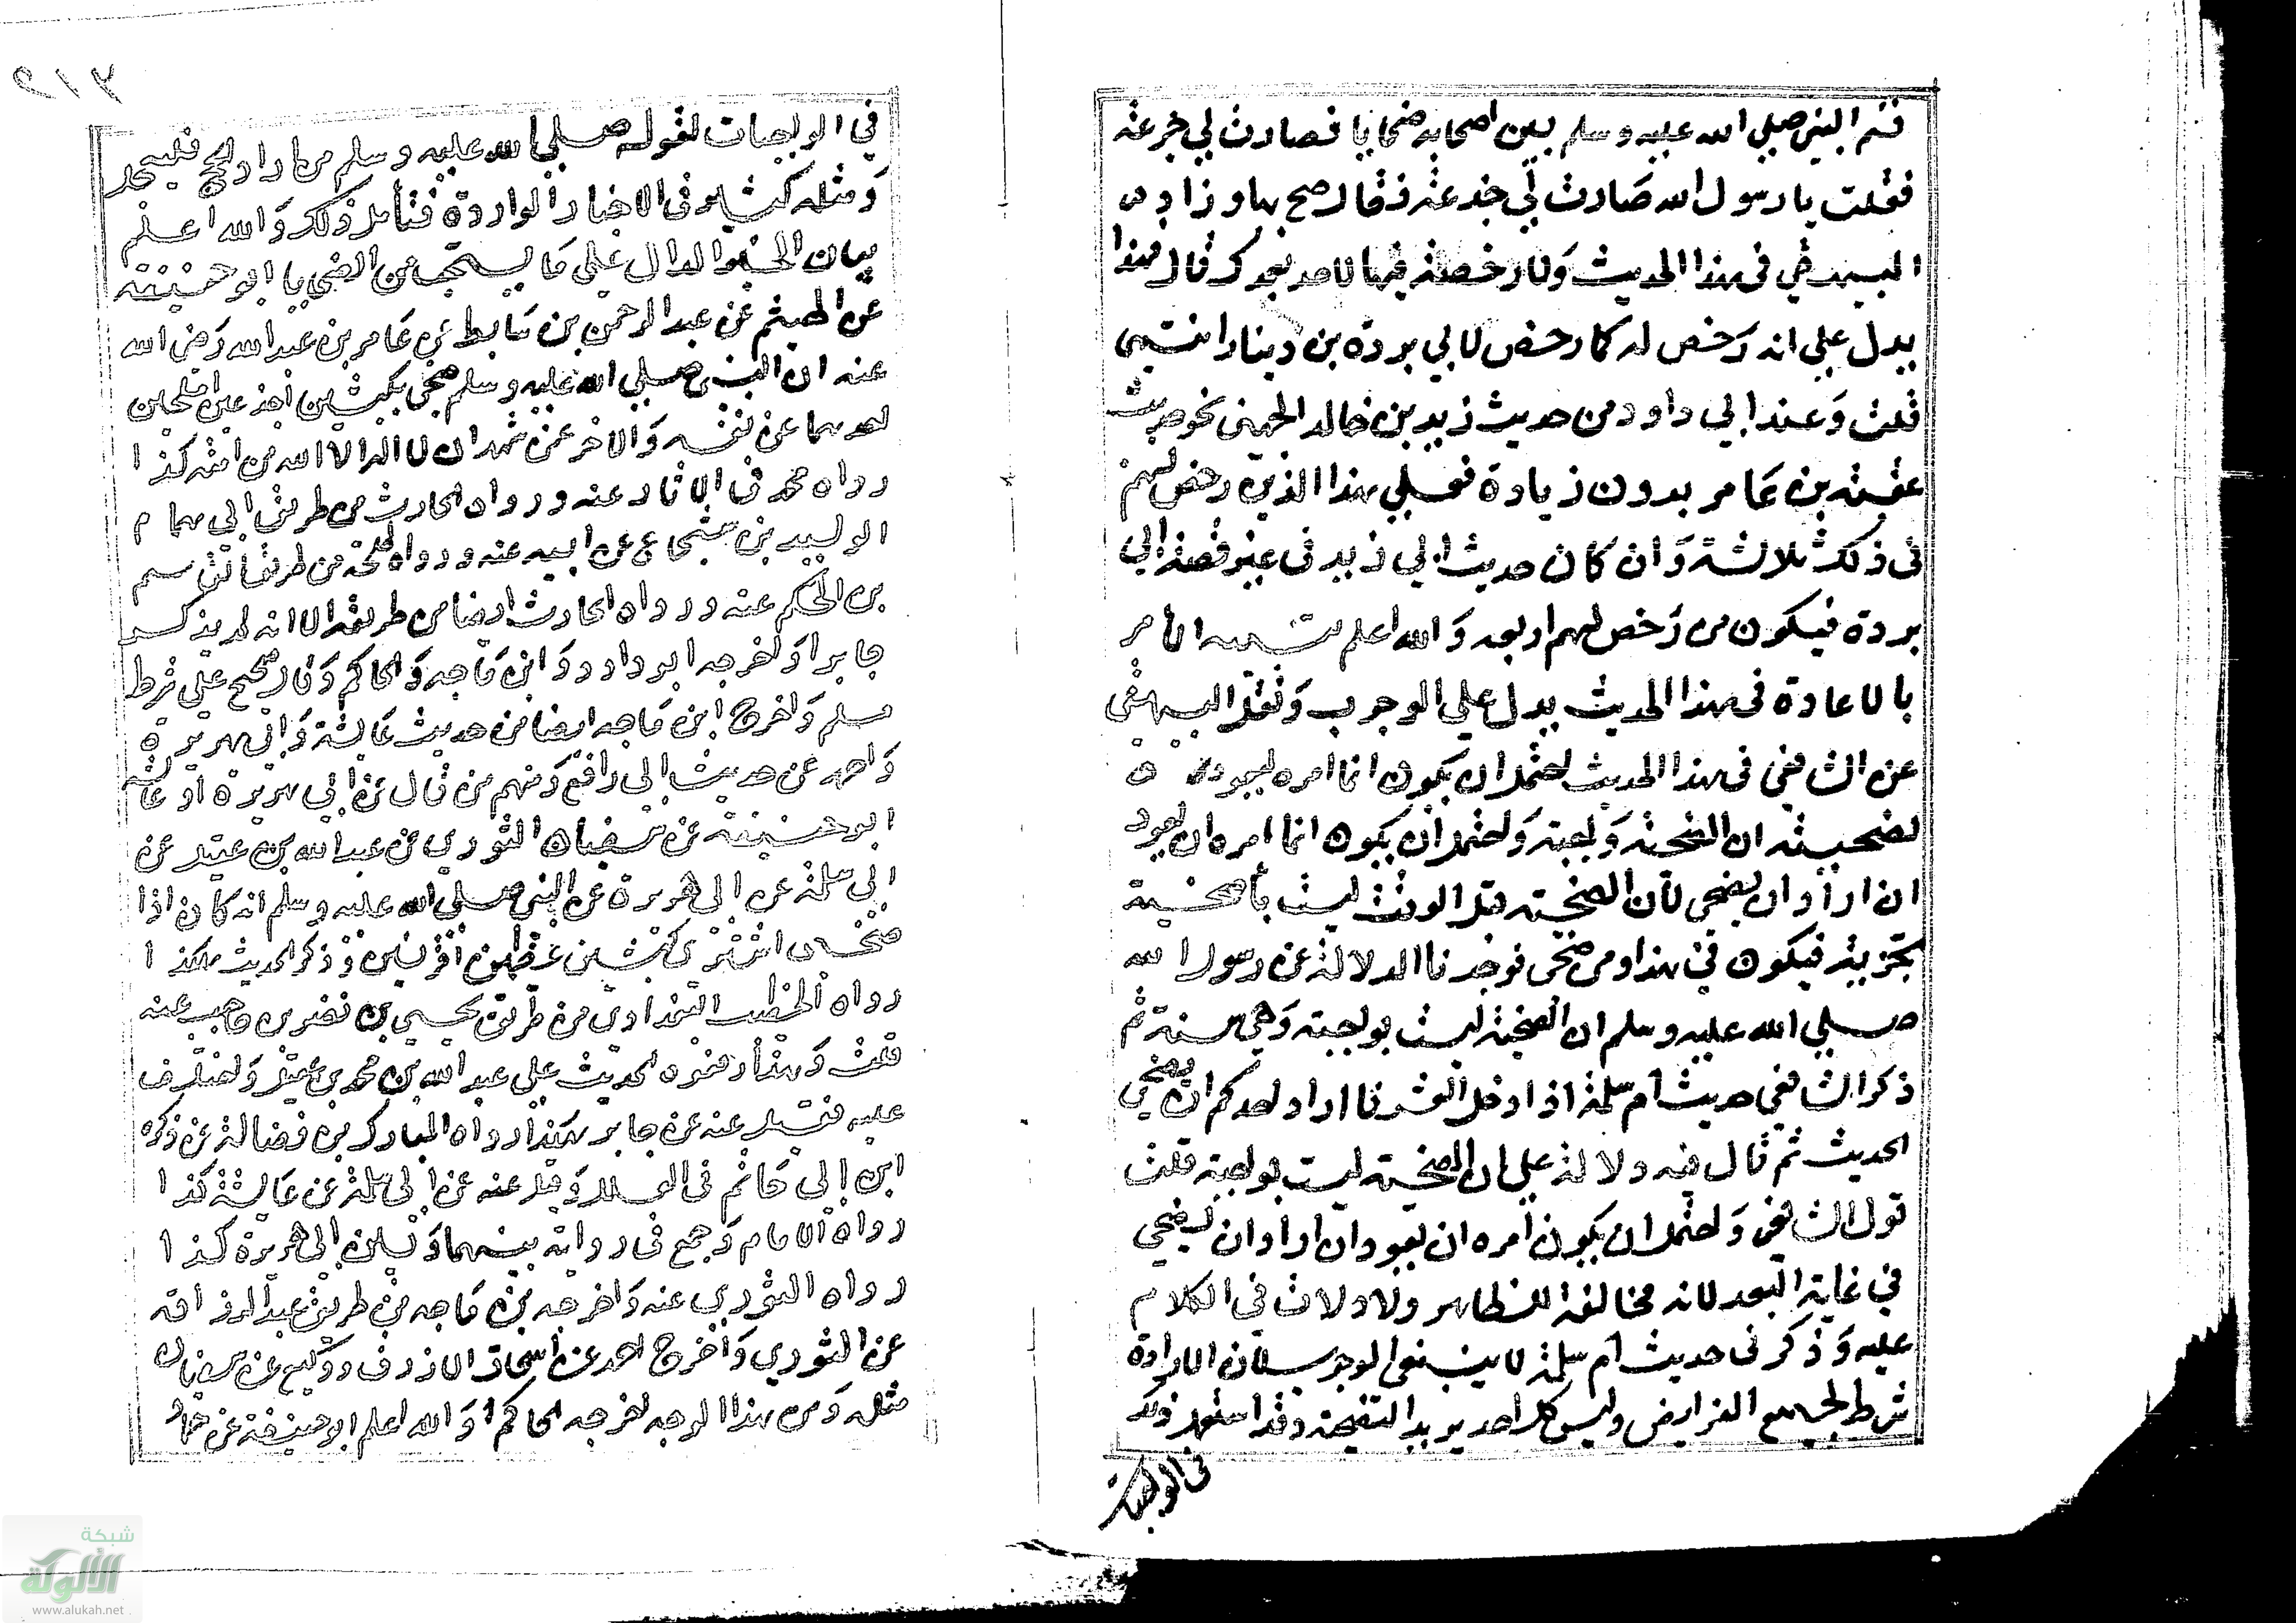 قسم النبي صلي الله عليه وسلم بين اصحابه ضحايا فصارت لي جزعة
فقلت يا رسول الله صارت لي جذعة فقال ضح بها وزاد
البيهقي في هذا الحديث ولا رخصة فيها لاحد بعدك قال فهذا
يدل علي انه رخص له كما رخص لابي بردة بن دينار انتهى
قلت وعند ابي داود من حديث زيد بن خالد الجهني نحو حديث
عقبة بن عامر بدون زيادة فعلي هذا الذين رخص لهم
في ذلك ثلاثة وان كان حديث ابي زيد في غير قصة ابي
بردة فيكون من رخص لهم اربعه والله اعلم الامر
بالاعادة في هذا الحديث يدل علي الوجوب ونقل البيهقي
عن الشافعي في هذا الحديث احتمل ان يكون انما امره ليعود
لضحيته ان الضحية واجبة واحتمل ان يكون انما امره ان يعود
ان اراد ان يضحي لان الضحية قبل الوقت ليست بأضحية
تجزيه فيكون في هذا ومن ضحى فوجدنا الدلالة عن رسول الله
صلي الله عليه وسلم ان الضحية ليست بواجبة وهي سنة ثم
ذكر الشافعي حديث ام سلمة اذا دخل العشر فاراد احدكم ان يضحي
الحديث ثم قال فيه دلالة علي ان الضحية ليست بواجبة قلت
قول الشافعي واحتمل ان يكون امره ان يعود ان اراد ان يضحي
في غاية البعد لانه مخالفة للظاهر ولا دلالت في الكلام
عليه وذكر في حديث ام سلمة لا ينفي الوجوب لان الارادة
شرط لجميع الفرايض وليس كل احد يريد التضحية وقد استعمل ذلك
في الواجبات
٢١٩
في الواجبات لقوله صلي الله عليه وسلم من اراد الحج فليتعجل
ومثله كثير في الاخبار الواردة فتأمل ذلك والله اعلم
بيان الخبر الدال علي ما يستحب من الضحايا ابو حنيفة
عن الهيثم عن عبد الرحمن بن سابط عن عامر بن عبد الله رضي الله
عنه ان النبي صلي الله عليه وسلم ضحي بكبشين اجذعين املحين
احدهما عن نفسه والاخر عن من شهد ان لا اله الا الله من امته كذا
رواه محمد في الاثار عنه ورواه الحارث من طريق ابي همام
الوليد بن شجاع عن ابيه عنه ورواه طلحة من طريق القسم
بن الحكم عنه ورواه الحارث ايضا من طريقه الا انه لم يذكر
جابرا واخرجه ابو داود وابن ماجه والحاكم وقال صحيح علي شرط
مسلم واخرج ابن ماجه ايضا من حديث عايشة وابي هريرة
واحمد عن حديث ابي رافع ومنهم من قال عن ابي هريرة او عائشة
ابو حنيفة عن سفيان الثوري عن عبد الله بن عقيل عن
ابي سلمة عن ابي هريرة عن النبي صلي الله عليه وسلم انه كان اذا
ضحى اشترى كبشين عظيمين اقرنين وذكر الحديث هكذا
رواه الخطيب البغدادي من طريق يحيي بن نصر بن حاجب عنه
قلت وهذا الحديث علي عبد الله بن محمد بن عقيل واختلف
عليه فقيل عنه عن جابر هكذا رواه المبارك بن فضالة عن ذكره
ابن ابي حاتم في العلل وقيل عنه عن ابي سلمة عن عايشة كذا
رواه الامام وجمع في رواية بينهما وبين ابي هريرة كذا
رواه الثوري عنه واخرجه بن ماجه من طريق عبد الرزاق
عن الثوري واخرج احمد عن اسحاق الازرق ووكيع عن سفيان
مثله ومن هذا الوجه اخرجه الحاكم والله اعلم ابو حنيفة عن حماد
شبكة
الألوكة
www.alukah.net